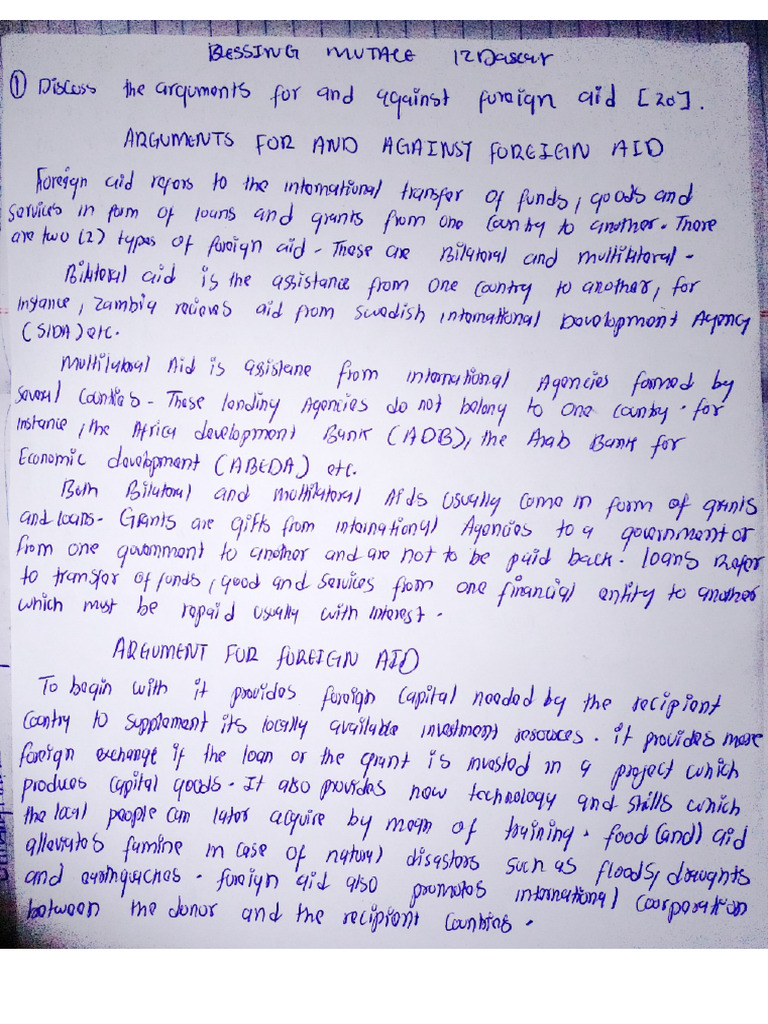 BLESSING MUTALE 12 Dascar
① Discuss the arguments for and against foreign aid [20].
ARGUMENTS FOR AND AGAINST FOREIGN AID
Foreign aid refers to the international transfer of funds, goods and
services in form of loans and grants from one country to another. There
are two (2) types of foreign aid - These are Bilateral and multilateral -
Bilateral aid is the assistance from one country to another, for
instance, Zambia recieves aid from Swedish international Development Agency
(SIDA) etc.
Multilateral Aid is assistane from international Agencies formed by
several Countries - These lending Agencies do not belong to one country. for
instance, the Africa development Bank (ADB), the Arab Bank for
Economic development (ABEDA) etc.
Both Bilateral and multilateral Aids usually come in form of grants
and loans. Grants are gifts from international Agencies to a government or
from one government to another and are not to be paid back. loans Refer
to transfer of funds, good and services from one financial entity to another
which must be repaid usually with interest.
ARGUMENT FOR FOREIGN AID
To begin with it provides foreign capital needed by the recipient
Country to supplement its locally available investment resources. it provides more
foreign exchange if the loan or the grant is invested in a project which
produces capital goods. It also provides new technology and skills which
the local people can later acquire by mean of training. food (and) aid
alleviates famine in case of natural disasters such as floods, draughts
and earthquackes. foreign aid also promotes international Coorporation
between the donor and the recipient Countries.